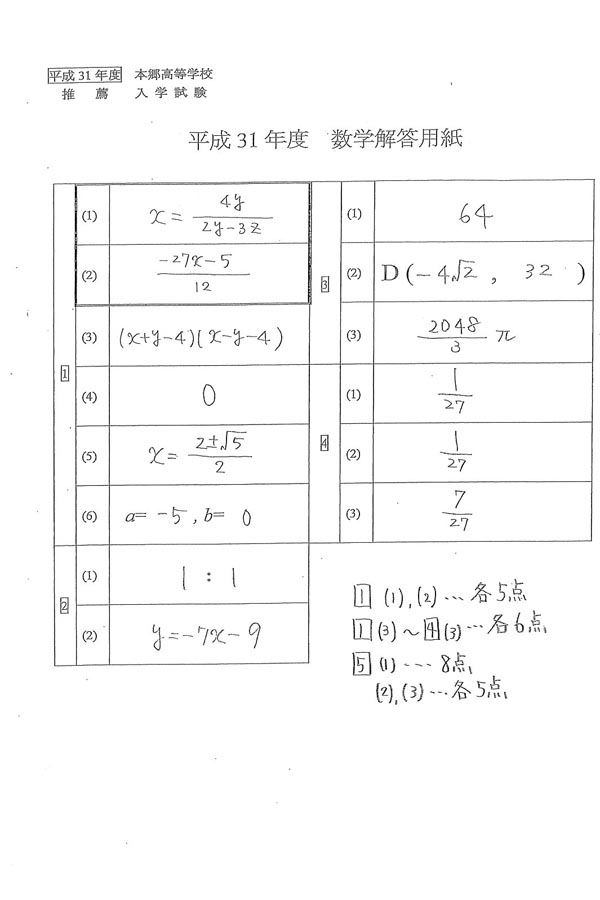 平成 31 年度 本郷高等学校
推 薦 入 学 試 験
平成 31 年度 数学解答用紙
1
(1) x = 4y / (2y-3z)
(2) (-27x-5) / 12
(3) (x+y-4)(x-y-4)
(4) 0
(5) x = (2±√5) / 2
(6) a= -5 , b= 0
2
(1) 1 : 1
(2) y=-7x-9
3
(1) 64
(2) D(-4√2 , 32 )
(3) 2048/3 π
4
(1) 1/27
(2) 1/27
(3) 7/27
1 (1),(2)…各5点
1 (3)~4(3)…各6点
5 (1)…8点
(2),(3)…各5点